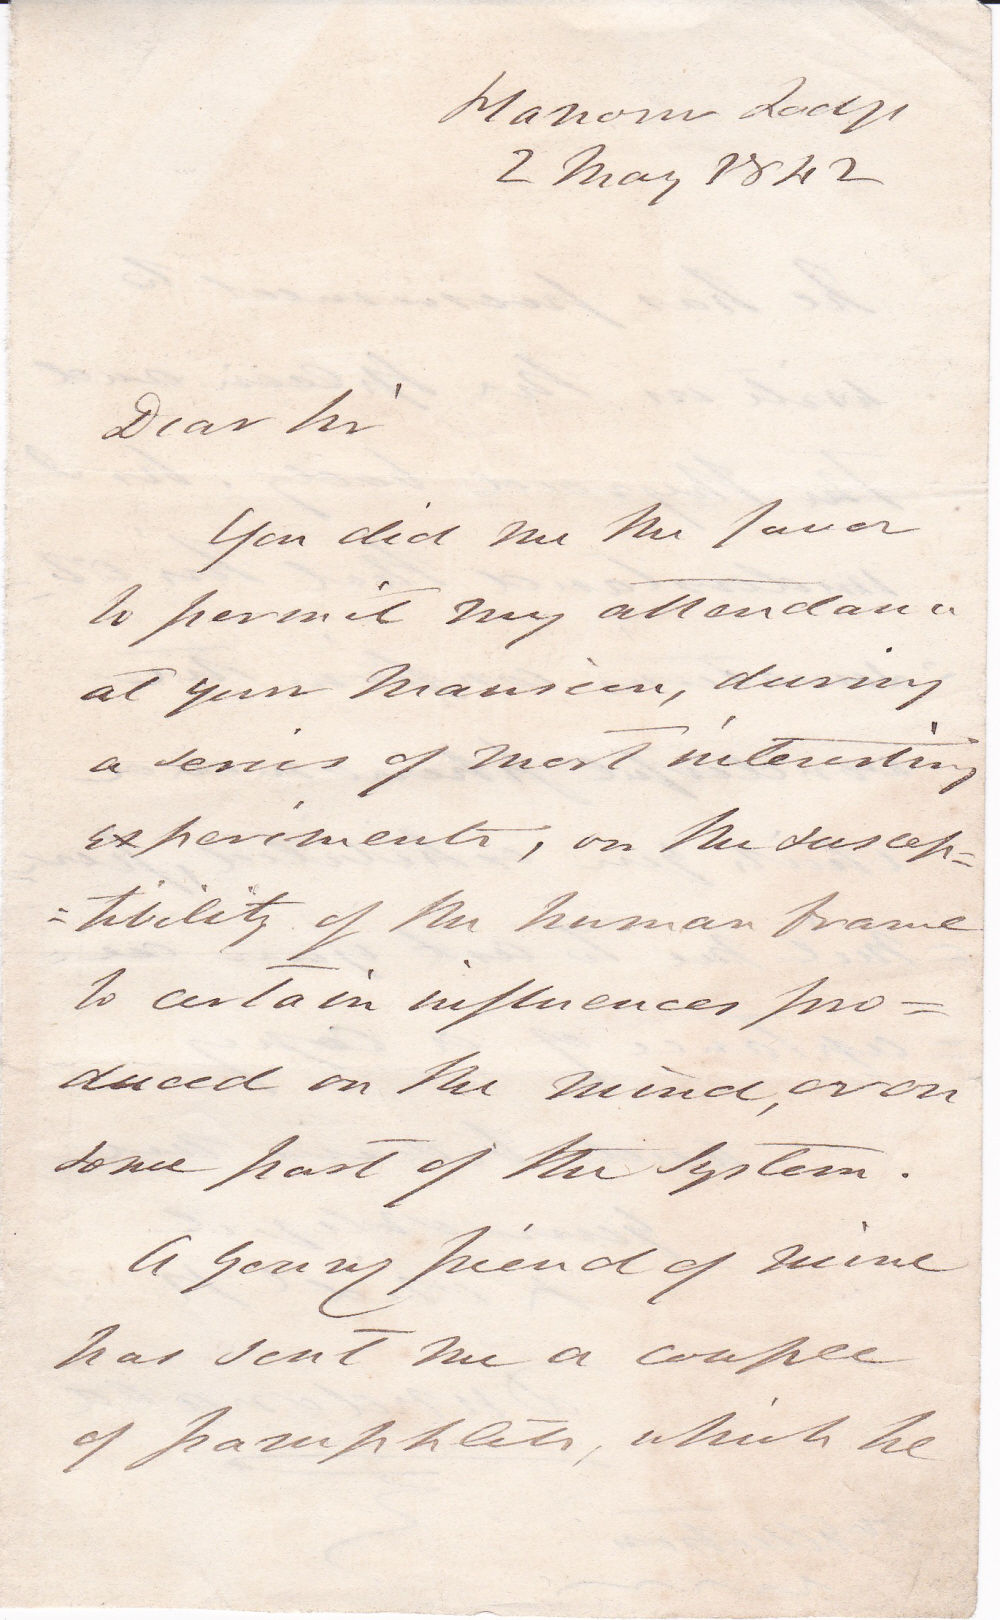 Hanover Lodge
2 May 1842
Dear Sir
You did me the favor
to permit my attendance
at your Mansion, during
a series of most interesting
experiments, on the suscep=
=tibility of the human frame
to certain influences pro=
duced on the mind, or on
some part of the System.
A young friend of mine
has sent me a couple
of pamphlets, which he